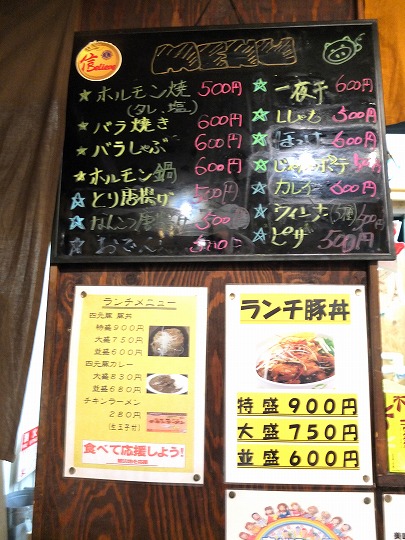 信
Believe
ホルモン焼 500円
(タレ、塩)
バラ焼き 600円
バラしゃぶ 600円
ホルモン鍋 600円
とり唐揚げ 500円
なんこつ唐揚げ 500
おでん
一夜干 600円
ししゃも 500円
ほっけ 600円
カレイ 600円
ウインナー
ピザ 500円
ランチメニュー
四元豚 豚丼
特盛900円
大盛750円
並盛600円
四元豚カレー
大盛830円
並盛680円
チキンラーメン
280円
(生玉子付)
食べて応援しよう!
ランチ豚丼
特盛 900円
大盛 750円
並盛 600円